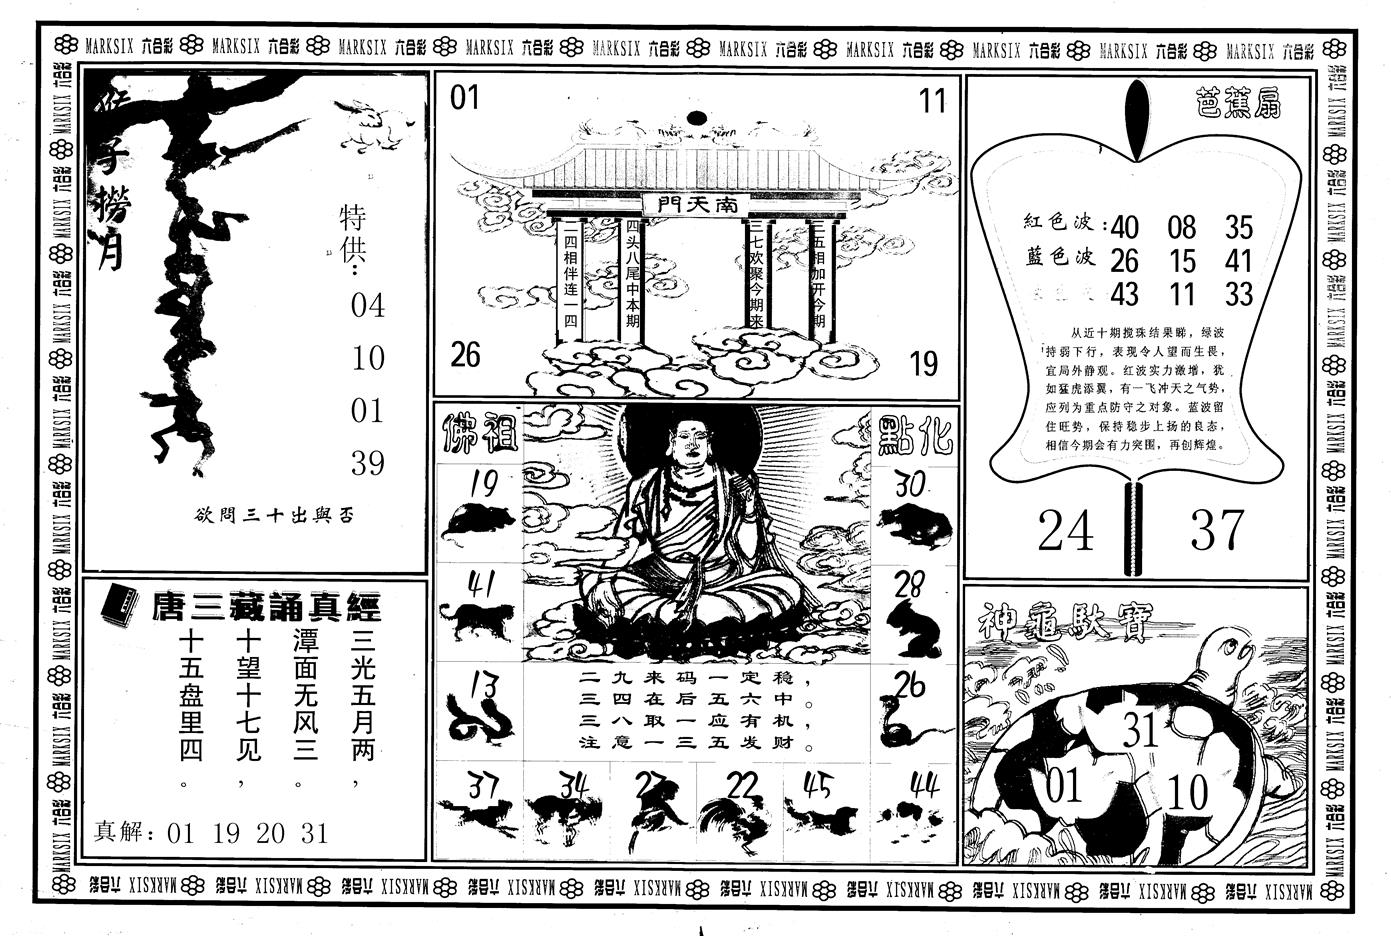 MARKSIX 六合彩 MARKSIX 六合彩 MARKSIX 六合彩 MARKSIX 六合彩 MARKSIX 六合彩 MARKSIX 六合彩 MARKSIX 六合彩 MARKSIX 六合彩 MARKSIX 六合彩 MARKSIX 六合彩
猴子撈月
特供：
04
10
01
39
欲問三十出與否
唐三藏誦真經
三光五月两，
潭面无风三。
十望十七见，
十五盘里四。
真解：01 19 20 31
01
11
南天門
二四相伴连一四
四头八尾中本期
三七欢聚今期来
三五相加开今期
26
19
佛祖
點化
19
30
41
28
13
26
二九来码一定稳，
三四在后五六中。
三八取一应有机，
注意一三五发财。
37 34 27 22 45 44
芭蕉扇
紅色波：40 08 35
藍色波 26 15 41
43 11 33
从近十期搅珠结果睇，绿波
持弱下行，表现令人望而生畏，
宜局外静观。红波实力激增，犹
如猛虎添翼，有一飞冲天之气势，
应列为重点防守之对象。蓝波留
住旺势，保持稳步上扬的良态，
相信今期会有力突围，再创辉煌。
24 37
神龜馱寶
31
01
10